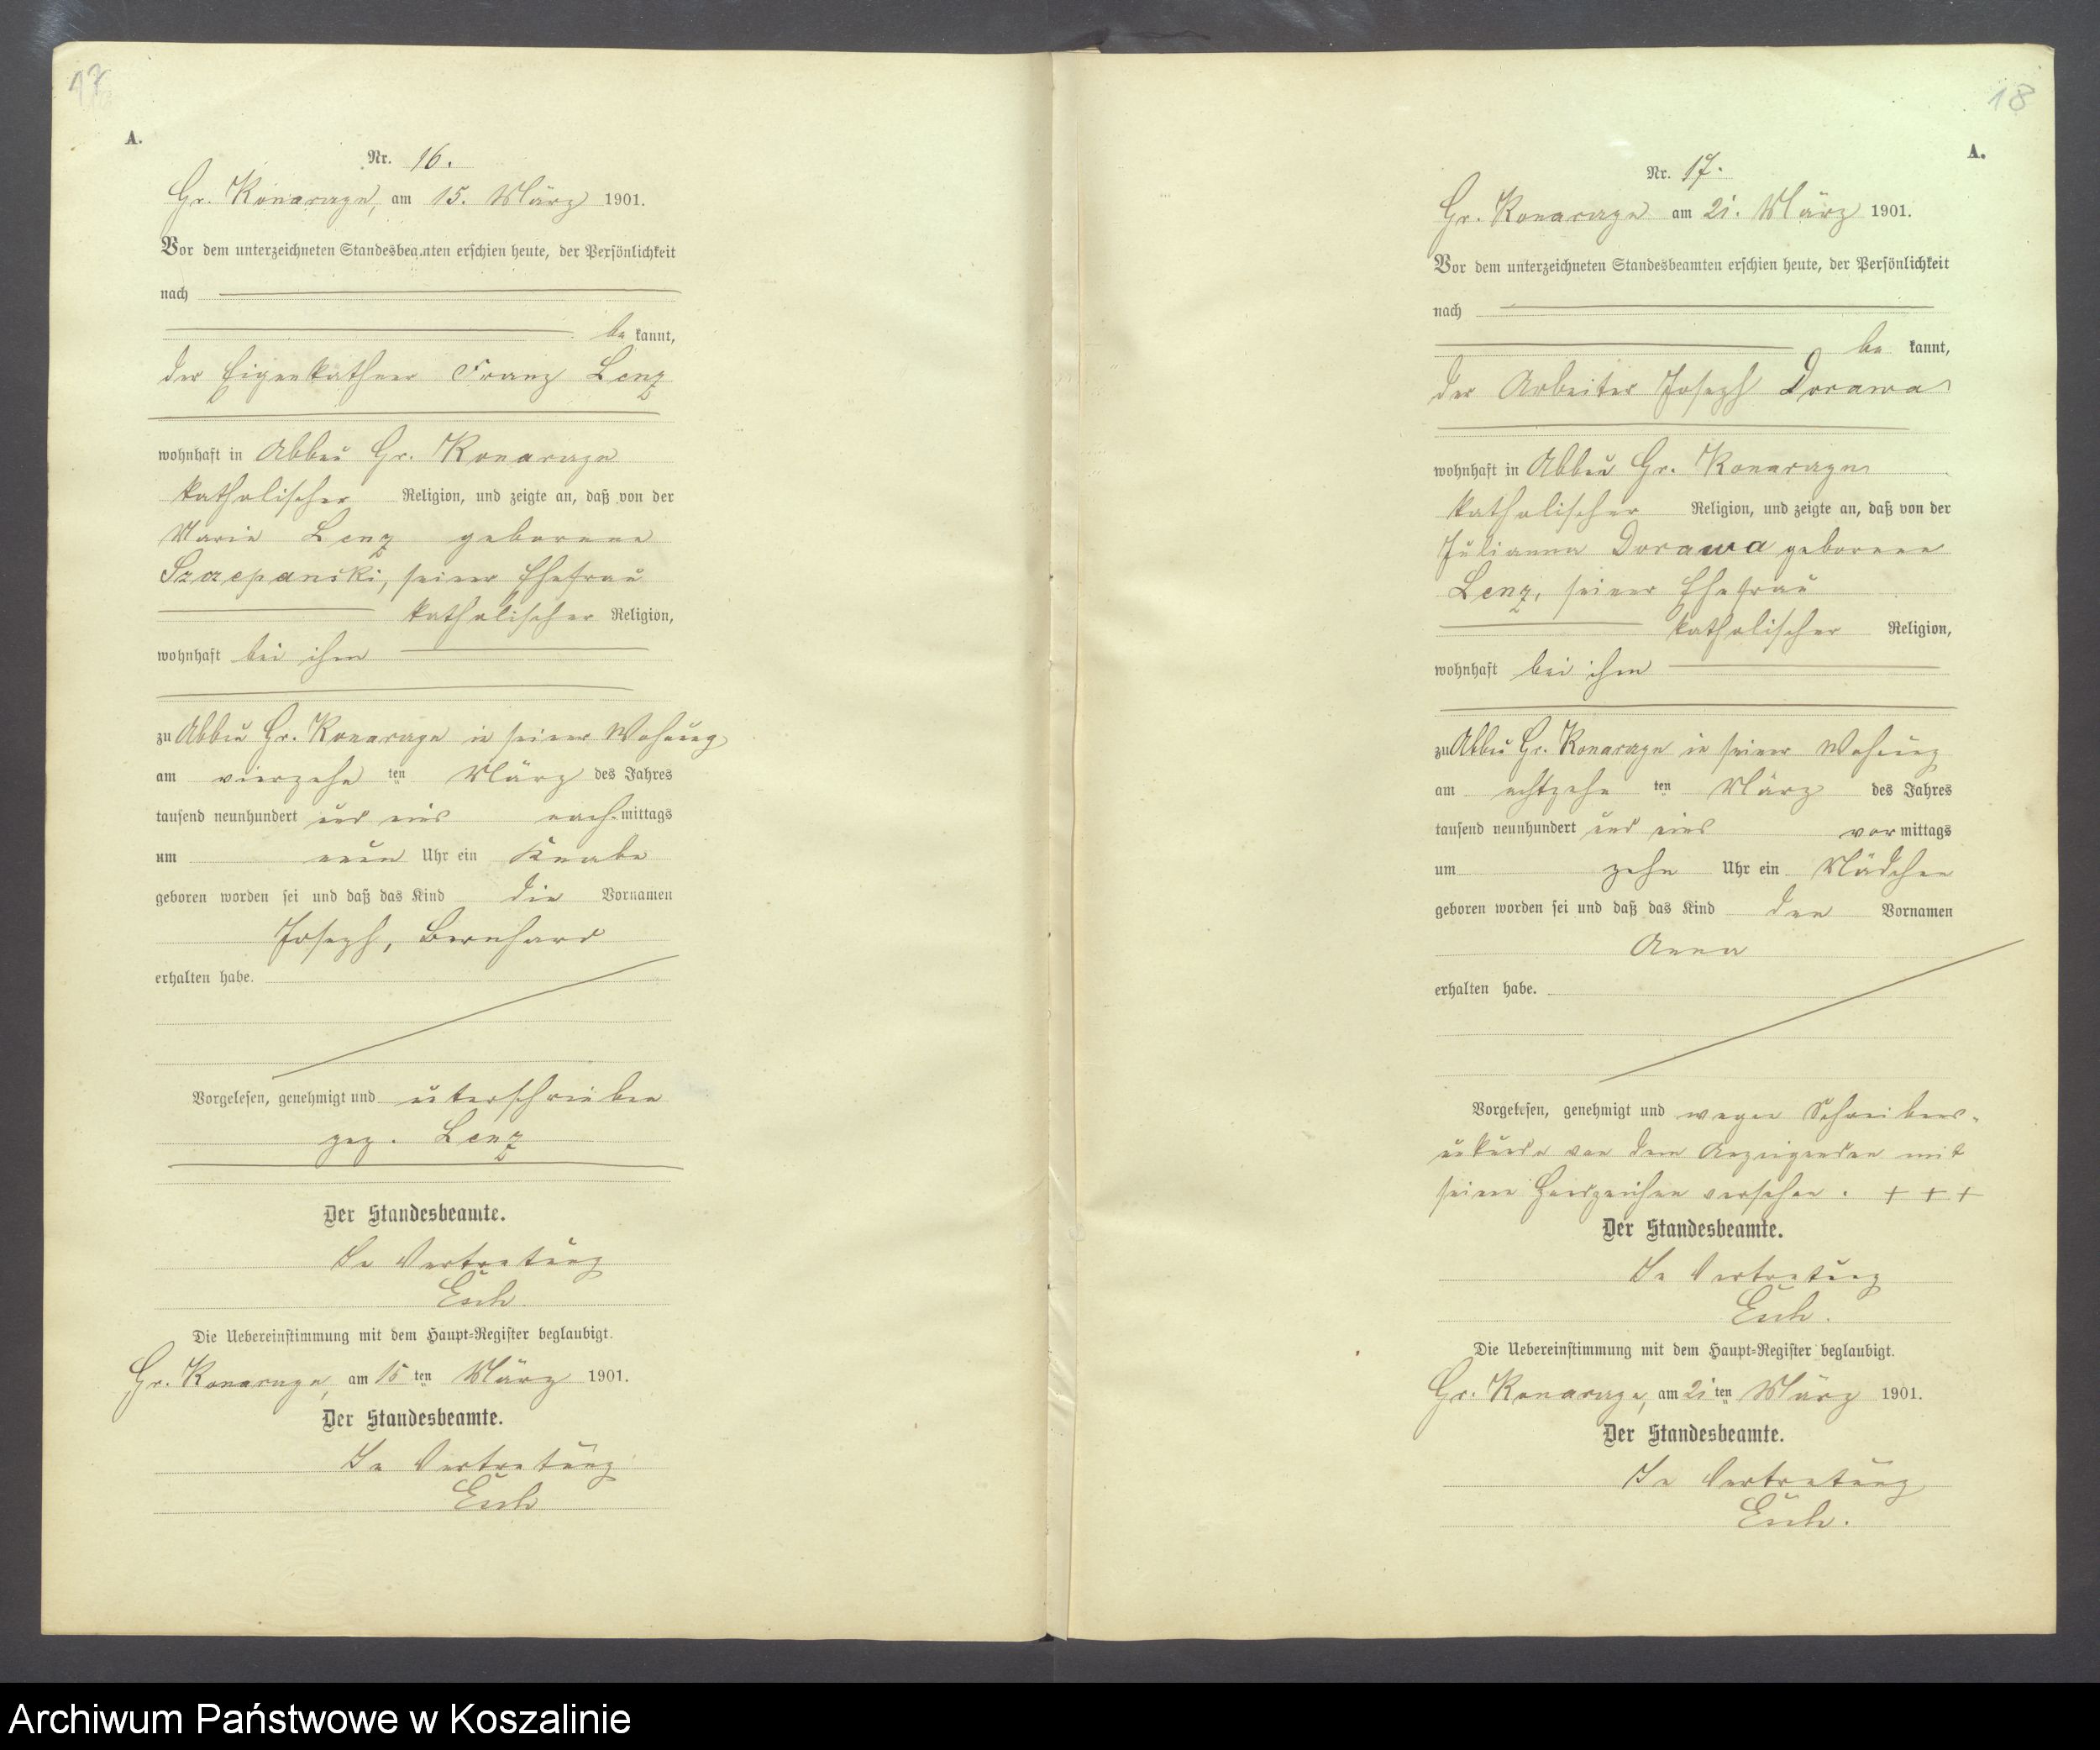 17
A.
Nr. 16.
Gr. Konarczyn, am 15. März 1901.
Vor dem unterzeichneten Standesbeamten erschien heute, der Persönlichkeit
nach
be kannt,
der Eigenkathner Franz Lenz
wohnhaft in Abbau Gr. Konarczyn
katholischer Religion, und zeigte an, daß von der
Maria Lenz geborene
Szczepanski, seiner Ehefrau
katholischer Religion,
wohnhaft bei ihm
zu Abbau Gr. Konarczyn in seiner Wohnung
am vierzehn ten März des Jahres
tausend neunhundert und eins nach mittags
um neun Uhr ein Knabe
geboren worden sei und daß das Kind die Vornamen
Joseph, Bernhard
erhalten habe.
Vorgelesen, genehmigt und unterschrieben
gez. Lenz
Der Standesbeamte.
In Vertretung
Esch
Die Uebereinstimmung mit dem Haupt=Register beglaubigt.
Gr. Konarczyn, am 15 ten März 1901.
Der Standesbeamte.
In Vertretung
Esch
18
A.
Nr. 17.
Gr. Konarczyn am 21. März 1901.
Vor dem unterzeichneten Standesbeamten erschien heute, der Persönlichkeit
nach
be kannt,
der Arbeiter Joseph Dorawa
wohnhaft in Abbau Gr. Konarczyn
katholischer Religion, und zeigte an, daß von der
Julianna Dorawa geborene
Lenz, seiner Ehefrau
katholischer Religion,
wohnhaft bei ihm
zu Abbau Gr. Konarczyn in seiner Wohnung
am achtzehn ten März des Jahres
tausend neunhundert und eins vor mittags
um zehn Uhr ein Mädchen
geboren worden sei und daß das Kind den Vornamen
Anna
erhalten habe.
Vorgelesen, genehmigt und wegen Schreibens-
unkunde von dem Anzeigenden mit
seinem Handzeichen versehen. + + +
Der Standesbeamte.
In Vertretung
Esch.
Die Uebereinstimmung mit dem Haupt=Register beglaubigt.
Gr. Konarczyn, am 21 ten März 1901.
Der Standesbeamte.
In Vertretung
Esch.
Archiwum Państwowe w Koszalinie